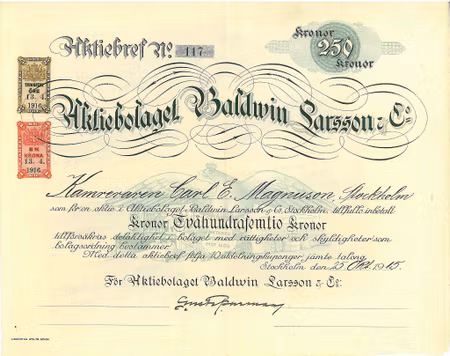 Aktiebref No. 117
Kronor
250
Kronor
ÖRE
13. 4.
1916
Aktiebolaget Baldwin Larsson & Co:
EN
KRONA
13. 4.
1916
Kamreraren Carl E. Magnuson, Stockholm
som för en aktie i Aktiebolaget Baldwin Larsson & Co, Stockholm, tillfullo inbetalt
Kronor Tvåhundrafemtio Kronor
tillförsäkras delaktighet i bolaget med rättigheter och skyldigheter som
bolagsordning bestämmer.
Med detta aktiebref följa 10 utdelningskuponger jämte talong.
Stockholm den 25 Okt. 1915.
För Aktiebolaget Baldwin Larsson & Co: